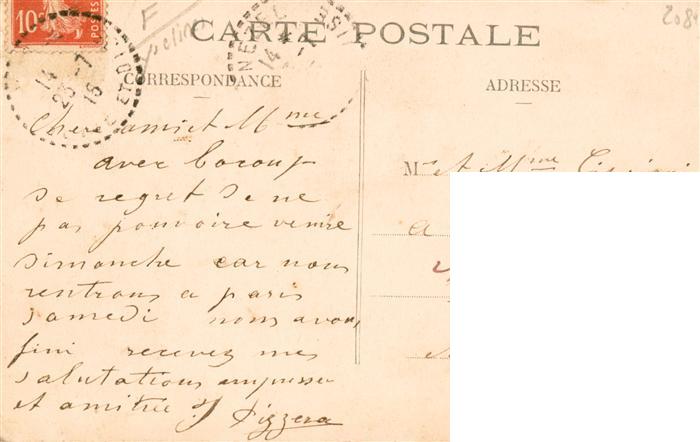 10c
POSTES
F
208
CARTE POSTALE
CORRESPONDANCE
ADRESSE
14
25 - 7
15
14
Chere ami et Mme
avec bocoup
de regret de ne
pas pouvoire venire
dimanche car nous
rentrons a paris
samedi nous avons
fini recevez mes
salutations empresse
et amitiee J Pizzera
M et Mme
a